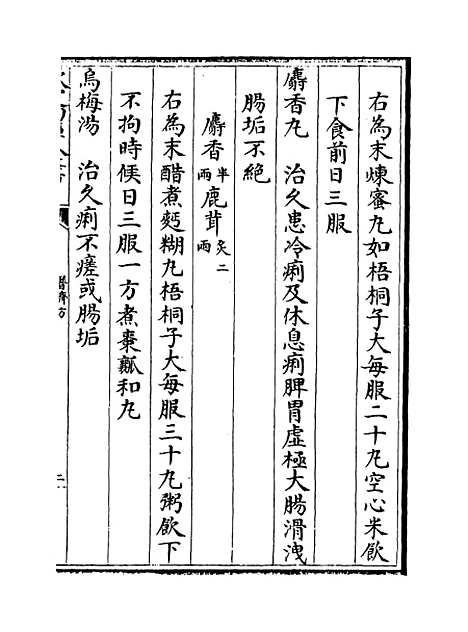 右為末煉蜜丸如梧桐子大每服二十丸空心米飲
下食前日三服
麝香丸 治久患冷痢及休息痢脾胃虛極大腸滑洩
腸垢不絶
麝香半兩 鹿茸炙二兩
右為末醋煮麪糊丸梧桐子大每服三十丸粥飲下
不拘時候日三服一方煮棗瓤和丸
烏梅湯 治久痢不瘥或腸垢
普濟方